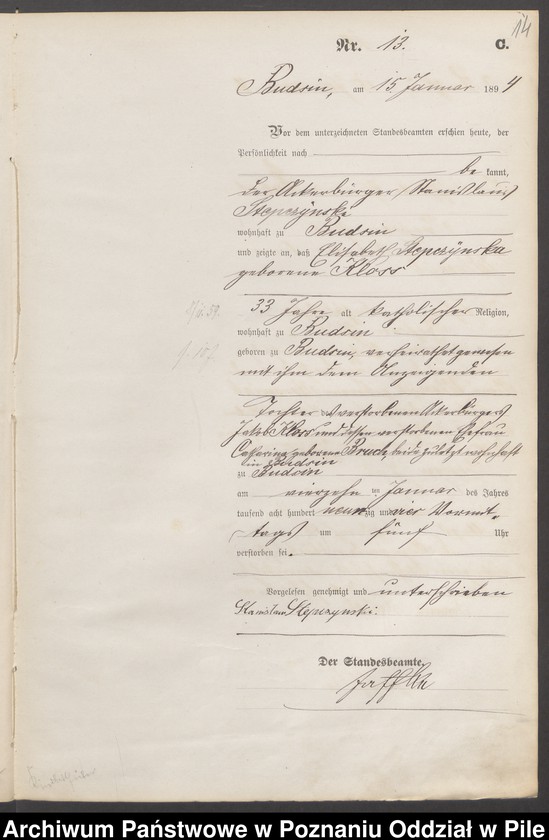 14
Nr. 13. C.
Budsin, am 15 Januar 1894
Vor dem unterzeichneten Standesbeamten erschien heute, der
Persönlichkeit nach
be kannt,
der Ackerbürger Stanislaus
Stepczÿnski
wohnhaft zu Budsin
und zeigte an, daß Elisabeth Stepczÿnska
geborene Kloss
33 Jahre alt katholischer Religion,
wohnhaft zu Budsin
geboren zu Budsin, verheirathet gewesen
mit ihm dem Anzeigenden
Tochter des verstorbenen Ackerbürgers
Jakob Kloss und dessen verstorbenen Ehefrau
Catharina geborene Bruch, beide zuletzt wohnhaft
in Budsin
zu Budsin
am vierzehn ten Januar des Jahres
tausend acht hundert neunzig und vier Vormit-
tags um fünf Uhr
verstorben sei.
Vorgelesen genehmigt und unterschrieben
Stanislaus Stepczynski.
Der Standesbeamte.
Archiwum Państwowe w Poznaniu Oddział w Pile